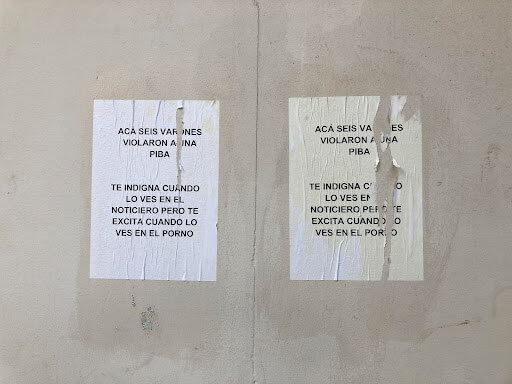 ACÁ SEIS VARONES
VIOLARON A UNA
PIBA
TE INDIGNA CUANDO
LO VES EN EL
NOTICIERO PERO TE
EXCITA CUANDO LO
VES EN EL PORNO
ACÁ SEIS VARONES
VIOLARON A UNA
PIBA
TE INDIGNA CUANDO
LO VES EN
NOTICIERO PERO TE
EXCITA CUANDO LO
VES EN EL PORNO